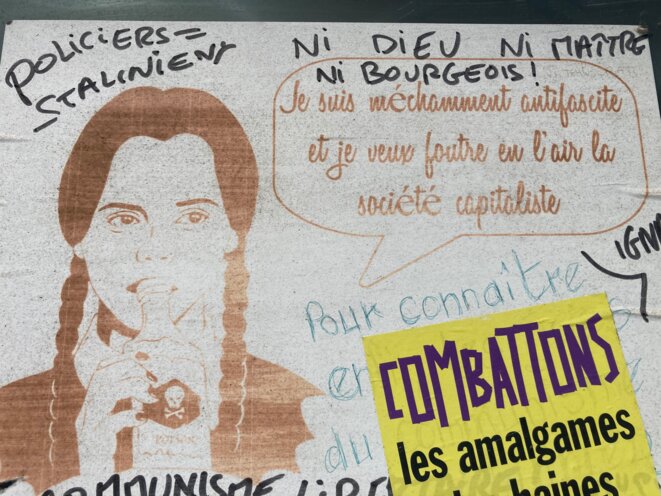 POLICIERS =
STALINIENT
NI DIEU NI MAÎTRE
NI BOURGEOIS!
Je suis méchamment antifascite
et je veux foutre en l'air la
société capitaliste
IGN
Pour connaître
en
du
COMBATTONS
les amalgames
haines
POISON
COMMUNISME LIB